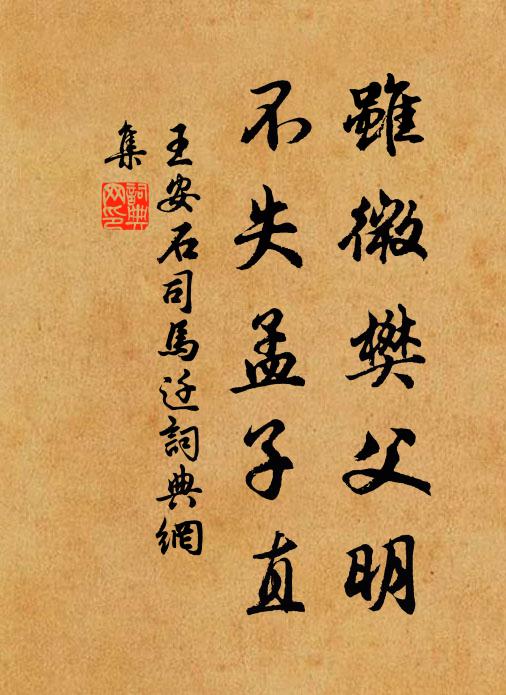 雖微樊父明
不失孟子直
王安石司馬迁詞典網
集
詞典网印